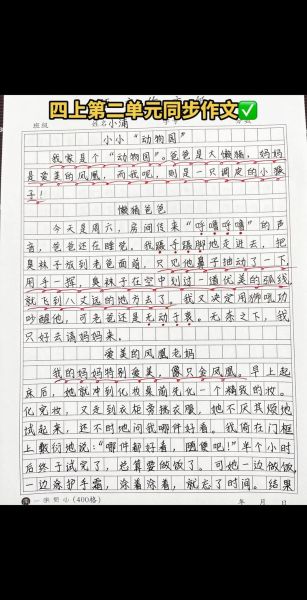 四上第二单元同步作文✅
班级
姓名小涌
小小“动物园”
我家是个“动物园”。爸爸是大懒猪，妈妈
是爱美的凤凰，而我呢，则是一只调皮的小猴
子！
懒猪爸爸
今天是周六，房间传来“呼噜呼噜”的声
音，爸爸还在睡觉，我蹑手蹑脚地走进去，把
臭袜子放到老爸面前，只见他鼻子抽动了一下，
用手一挥，臭袜子在空中划过一道优美的弧线，
就飞到八丈远的地方去了。我又决定用狮吼功
吵醒他，可老爸还是无动于衷。无奈之下，我
只好去请妈妈来。
爱美的凤凰老妈
我的妈妈特别爱美，像只金凤凰。早上起
床后，她就冲到化妆桌前先化一个精致的妆。
化完妆，又走到衣柜旁挑衣服，她不厌其烦地
试起来，还不时地问我哪件好看。我倚在门框
上敷衍地说：“哪件都好看，随便吧！”半个小时
后终于试完了，总算要做饭了。可她一边做饭，
一边涂护手霜，涂着涂着，就忘了时间。结果
一字明心(400格)
年 月 日